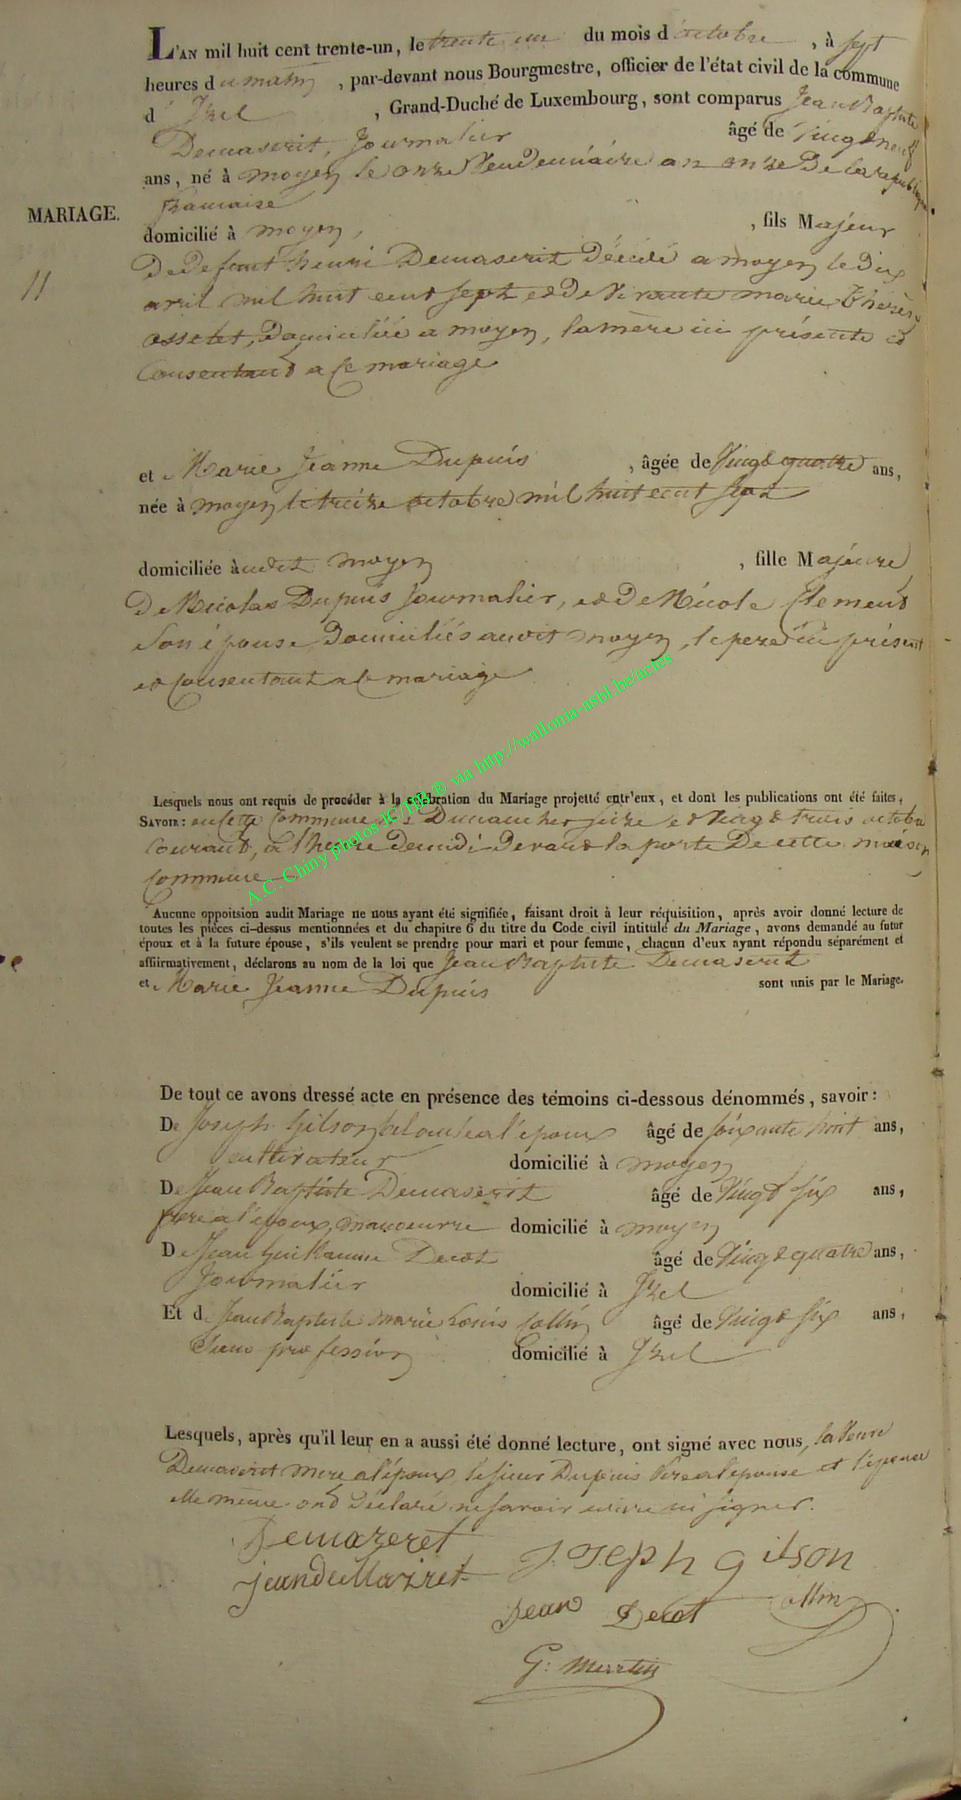 L'AN mil huit cent trente-un, le trente un du mois d'octobre, à sept
heures du matin, par-devant nous Bourgmestre, officier de l'état civil de la commune
d' Izel, Grand-Duché de Luxembourg, sont comparus Jean Baptiste
Demaseret, Journalier âgé de Vingt neuf
ans, né à moyen le onze Vendemiaire an onze De la republique
francaise
MARIAGE.
domicilié à moyen, , fils Majeur
11
De Defunt henri Demaseret Décédé a moyen le Dix
avril mil huit cent sept et De Vivante marie thérèse
assetet, Domiciliée a moyen, la mère ici présente et
Consentant a Ce mariage
et Marie Jeanne Dupuis, âgée de Vingt quatre ans,
née à moyen le treize octobre mil huit cent sept
domiciliée àudit moyen, fille Majeure
De Nicolas Dupuis Journalier, et De Nicole Clement
Son épouse Domiciliés audit moyen, le pere ici présent
et Consentant a Ce mariage
Lesquels nous ont requis de procéder à la célébration du Mariage projetté entr'eux, et dont les publications ont été faites,
SAVOIR: en Cette Commune les Dimanches seize et Vingt trois octobre
Courant, a l'heure De midi Devant la porte De cette maison
Commune
Aucune oppoitsion audit Mariage ne nous ayant été signifiée, faisant droit à leur réquisition, après avoir donné lecture de
toutes les pièces ci-dessus mentionnées et du chapitre 6 du titre du Code civil intitulé du Mariage, avons demandé au futur
époux et à la future épouse, s'ils veulent se prendre pour mari et pour femme, chacun d'eux ayant répondu séparément et
affiirmativement, déclarons au nom de la loi que Jean Baptiste Demaseret
et Marie Jeanne Dupuis sont unis par le Mariage.
A.C. Chiny photos JC/HPL® via http://wallonia-asbl.be/actes
De tout ce avons dressé acte en présence des témoins ci-dessous dénommés, savoir:
De Joseph Gilson bel oncle a l'epoux âgé de soixante huit ans,
cultivateur domicilié à moyen
De Jean Baptiste Demaseret âgé de Vingt six ans,
frere a l'epoux, manoeuvre domicilié à moyen
De Jean Guillaume Decot âgé de Vingt quatre ans,
Journalier domicilié à Izel
Et d. Jean Baptiste marie Louis Collin âgé de Vingt six ans,
Sans profession domicilié à Izel
Lesquels, après qu'il leur en a aussi été donné lecture, ont signé avec nous, la Veuve
Demaseret mere a l'époux, le sieur Dupuis Pere a l'epouse et l'epouse
elle même ont Déclaré ne savoir ecrire ni signer.
Demazeret
jean demazret Joseph gilson
Jean Decot Collin
G: Merttens